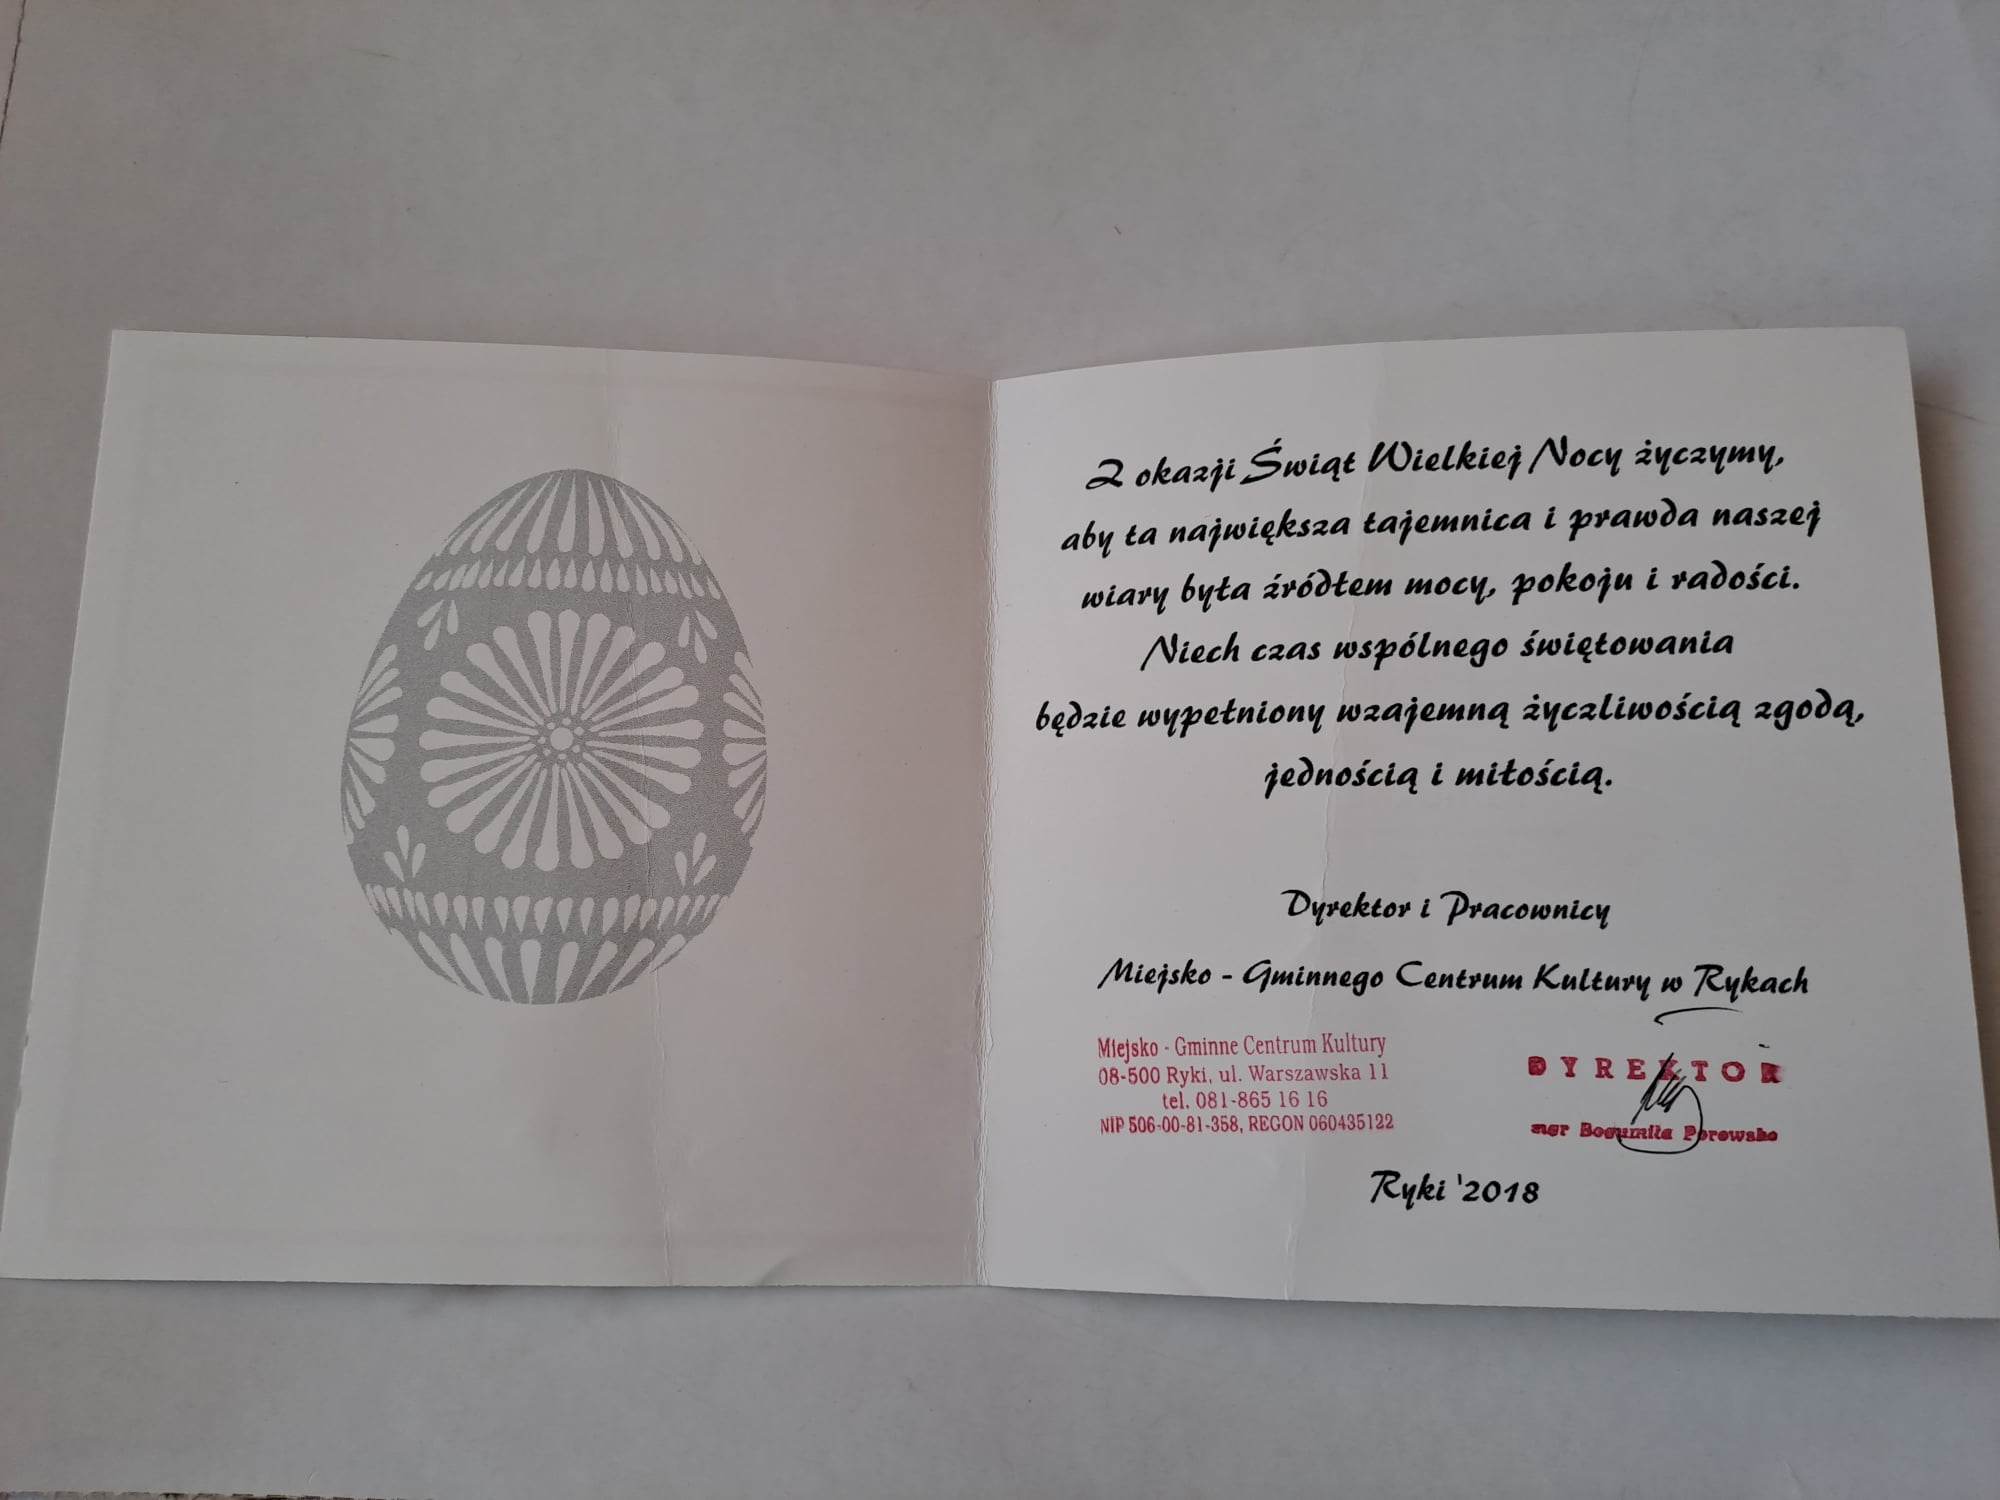 Z okazji Świąt Wielkiej Nocy życzymy,
aby ta największa tajemnica i prawda naszej
wiary była źródłem mocy, pokoju i radości.
Niech czas wspólnego świętowania
będzie wypełniony wzajemną życzliwością zgodą,
jednością i miłością.
Dyrektor i Pracownicy
Miejsko - Gminnego Centrum Kultury w Rykach
Miejsko - Gminne Centrum Kultury
08-500 Ryki, ul. Warszawska 11
tel. 081-865 16 16
NIP 506-00-81-358, REGON 060435122
DYREKTOR
mgr Bogumiła Porowska
Ryki '2018